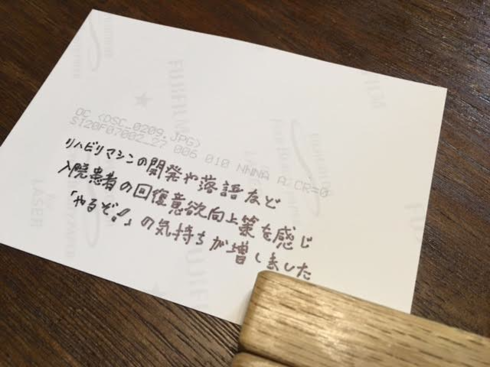 OC (DSC_0209.JPG)
リハビリマシンの開発や落語など
入院患者の回復意欲向上策を感じ
「やるぞ!!」の気持ちが増しました
LASER